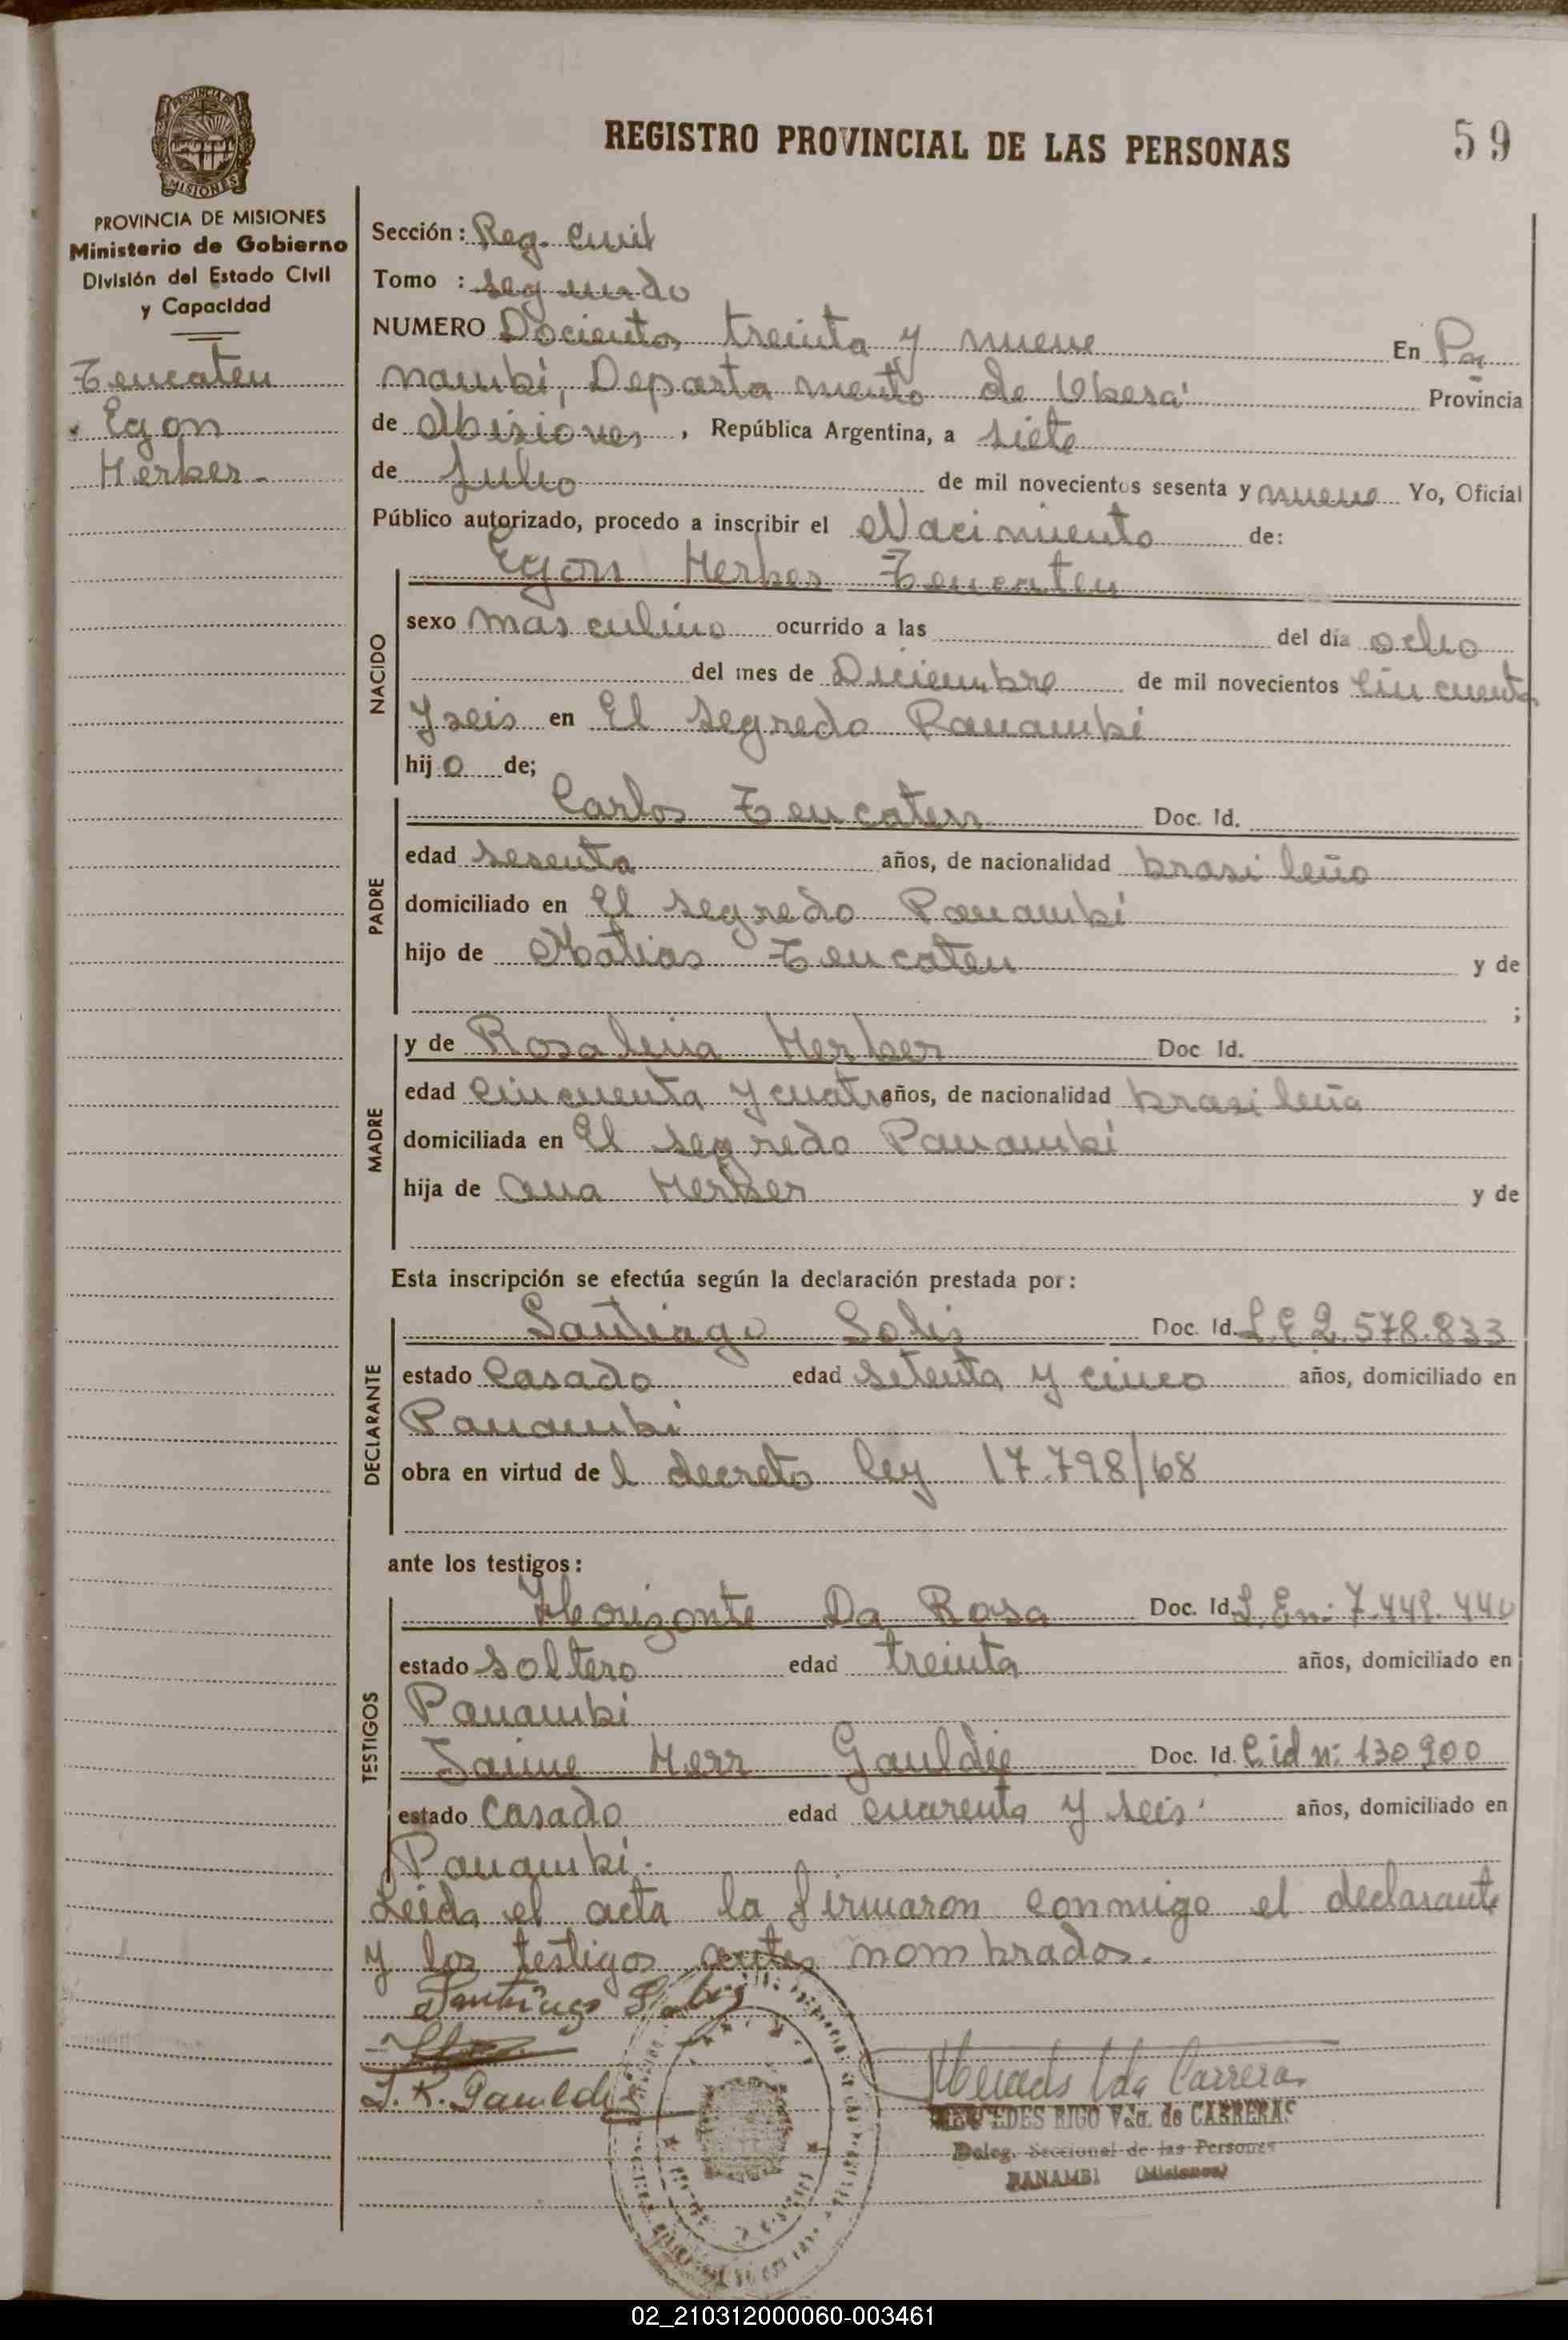 REGISTRO PROVINCIAL DE LAS PERSONAS
59
PROVINCIA DE
MISIONES
PROVINCIA DE MISIONES
Ministerio de Gobierno
División del Estado Civil
y Capacidad
Teucaten
Egon
Herber.
Sección: Reg. Civil
Tomo : segundo
NUMERO Docientos treinta y nueve En Pa
nambí, Departamento de Oberá Provincia
de Misiones, República Argentina, a siete
de Julio de mil novecientos sesenta y nueve Yo, Oficial
Público autorizado, procedo a inscribir el Nacimiento de:
NACIDO
Egon Herber Teucaten
sexo masculino ocurrido a las del día ocho
del mes de Diciembre de mil novecientos cincuenta
y seis en El Segredo Panambí
hijo de;
PADRE
Carlos Teucaten Doc. Id.
edad sesenta años, de nacionalidad brasileño
domiciliado en El segredo Panambí
hijo de Matias Teucaten y de
;
MADRE
y de Rosalina Herber Doc Id.
edad cincuenta y cuatro años, de nacionalidad brasileña
domiciliada en El segredo Panambí
hija de Ana Herber y de
Esta inscripción se efectúa según la declaración prestada por:
DECLARANTE
Santiago Solis Doc. Id. L.E 2.578.833
estado Casado edad setenta y cinco años, domiciliado en
Panambí
obra en virtud del decreto ley 17.798/68
ante los testigos:
TESTIGOS
Horizonte Da Rosa Doc. Id. L.En: 7.449.440
estado soltero edad treinta años, domiciliado en
Panambí
Jaime Herr Gauldie Doc. Id. C id n: 130900
estado casado edad cuarenta y seis años, domiciliado en
Panambí.
Leida el acta la firmaron conmigo el declarante
y los testigos antes nombrados.
Santiago Solis
J. K. Gauldie
Mercedes Vda Carreras
MERCEDES RIGO Vda. de CARRERAS
Deleg. Seccional de las Personas
PANAMBI (Misiones)
02_210312000060-003461